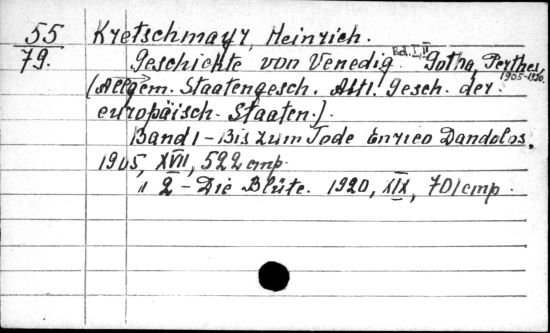 55 Kretschmayr, Heinrich.
79. Geschichte von Venedig. Bd. I, II Gotha, Perthes, 1905-1920.
(Allgem. Staatengesch. Abt 1. Gesch. der
europäisch. Staaten.).
Band 1 - Bis zum Tode Enrico Dandolos.
1905, XVII, 522 стр.
" 2 - Die Blüte. 1920, XIX, 701 стр.